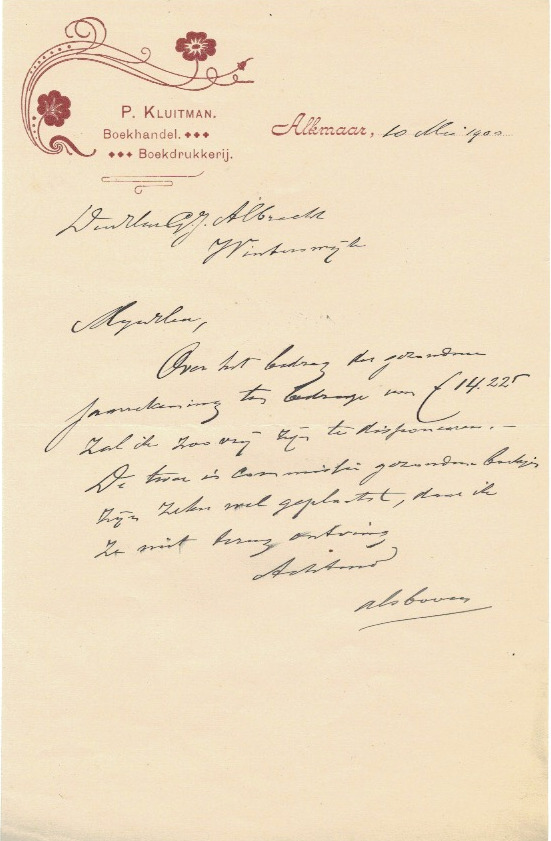 P. KLUITMAN.
Boekhandel.
Boekdrukkerij.
Alkmaar, 10 Mei 1900
Den Heer G.J. Albrecht
Winterswijk
Mijnheer,
Over het bedrag der gezonden
jaarrekening ten bedrage van ƒ 14.225
zal ik zoo vrij zijn te disponeeren. —
De twee in commissie gezonden boekjes
zijn zeker wel geplaatst, daar ik
ze niet terug ontving
Achtend
als boven